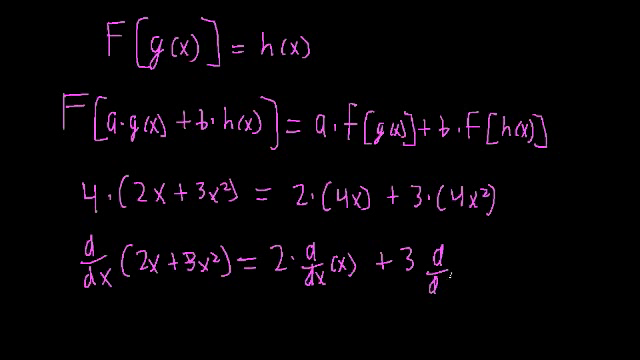 F[g(x)] = h(x)
F[a·g(x) + b·h(x)] = a·F[g(x)] + b·F[h(x)]
4·(2x + 3x²) = 2·(4x) + 3·(4x²)
d/dx (2x + 3x²) = 2·d/dx (x) + 3 d/d